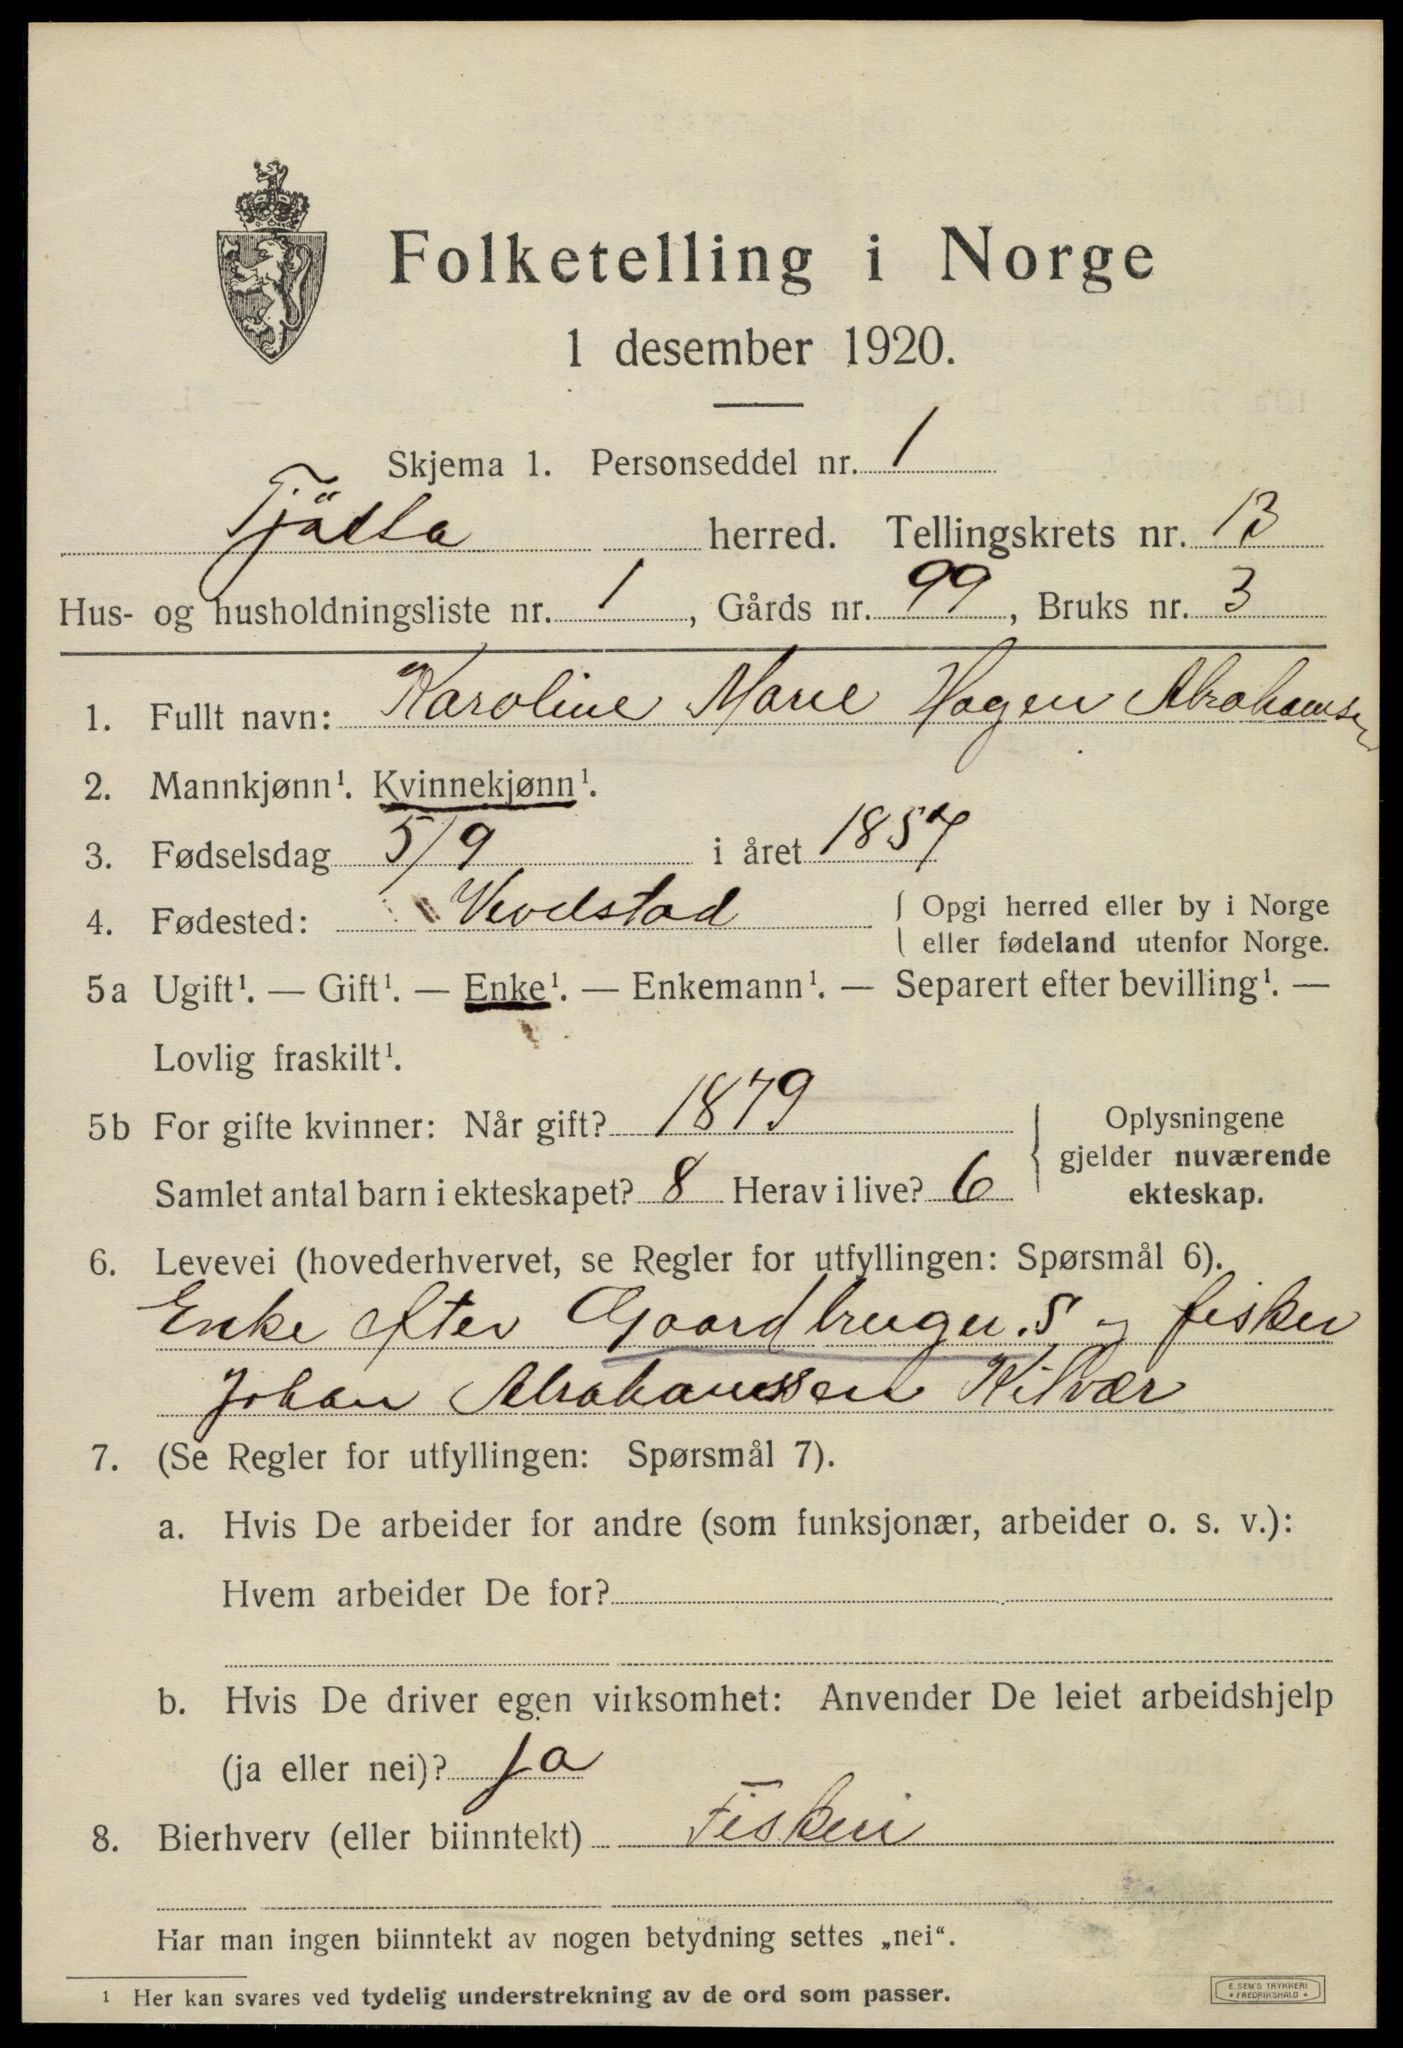 Folketelling i Norge
1 desember 1920.
Skjema 1. Personseddel nr. 1
Tjötta herred. Tellingskrets nr. 13
Hus- og husholdningsliste nr. 1, Gårds nr. 99, Bruks nr. 3
1. Fullt navn: Karoline Marie Hagen Abrahamsen
2. Mannkjønn¹. Kvinnekjønn¹.
3. Fødselsdag 5/9 i året 1857
4. Fødested: Vevelstad { Opgi herred eller by i Norge
eller fødeland utenfor Norge.
5a Ugift¹. — Gift¹. — Enke¹. — Enkemann¹. — Separert efter bevilling¹. —
Lovlig fraskilt¹.
5b For gifte kvinner: Når gift? 1879
Samlet antal barn i ekteskapet? 8 Herav i live? 6
Oplysningene
gjelder nuværende
ekteskap.
6. Levevei (hovederhvervet, se Regler for utfyllingen: Spørsmål 6).
Enke efter Gaardbruger. S og fisker
Johan Abrahamssen Kilvær
7. (Se Regler for utfyllingen: Spørsmål 7).
a. Hvis De arbeider for andre (som funksjonær, arbeider o. s. v.):
Hvem arbeider De for?
b. Hvis De driver egen virksomhet: Anvender De leiet arbeidshjelp
(ja eller nei)? ja
8. Bierhverv (eller biinntekt) Fiskeri
Har man ingen biinntekt av nogen betydning settes „nei“.
¹ Her kan svares ved tydelig understrekning av de ord som passer.
E. SEM'S TRYKKERI
* FREDRIKSHALD *